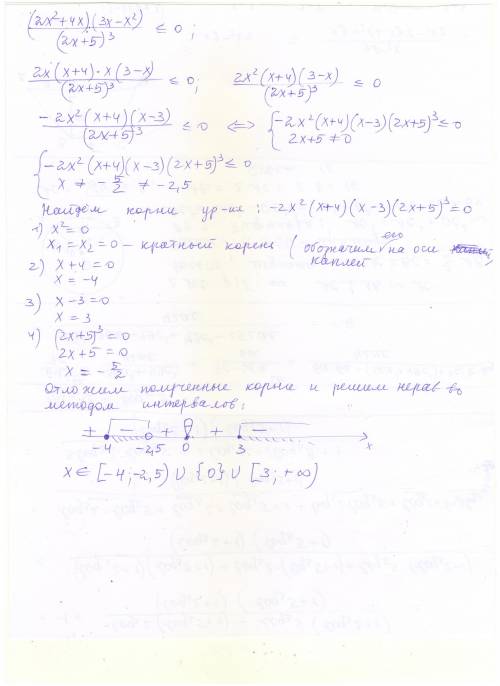 (2x²+4x)(3x-x²) / (2x+5)³ ≤ 0;
2x(x+4)·x(3-x) / (2x+5)³ ≤ 0; 2x²(x+4)(3-x) / (2x+5)³ ≤ 0
- 2x²(x+4)(x-3) / (2x+5)³ ≤ 0 ⟺ { -2x²(x+4)(x-3)(2x+5)³ ≤ 0
2x+5 ≠ 0
{ -2x²(x+4)(x-3)(2x+5)³ ≤ 0
x ≠ - 5/2 ≠ -2,5
Найдём корни ур-ия: -2x²(x+4)(x-3)(2x+5)³ = 0
1) x² = 0
x₁ = x₂ = 0 – кратный корень (обозначим его на оси
каплей)
2) x+4 = 0
x = -4
3) x-3 = 0
x = 3
4) (2x+5)³ = 0
2x+5 = 0
x = - 5/2
Отложим полученные корни и решим нерав-во
методом интервалов:
+ - + + -
-4 -2,5 0 3 x
x ∈ [-4;-2,5) ∪ {0} ∪ [3;+∞)